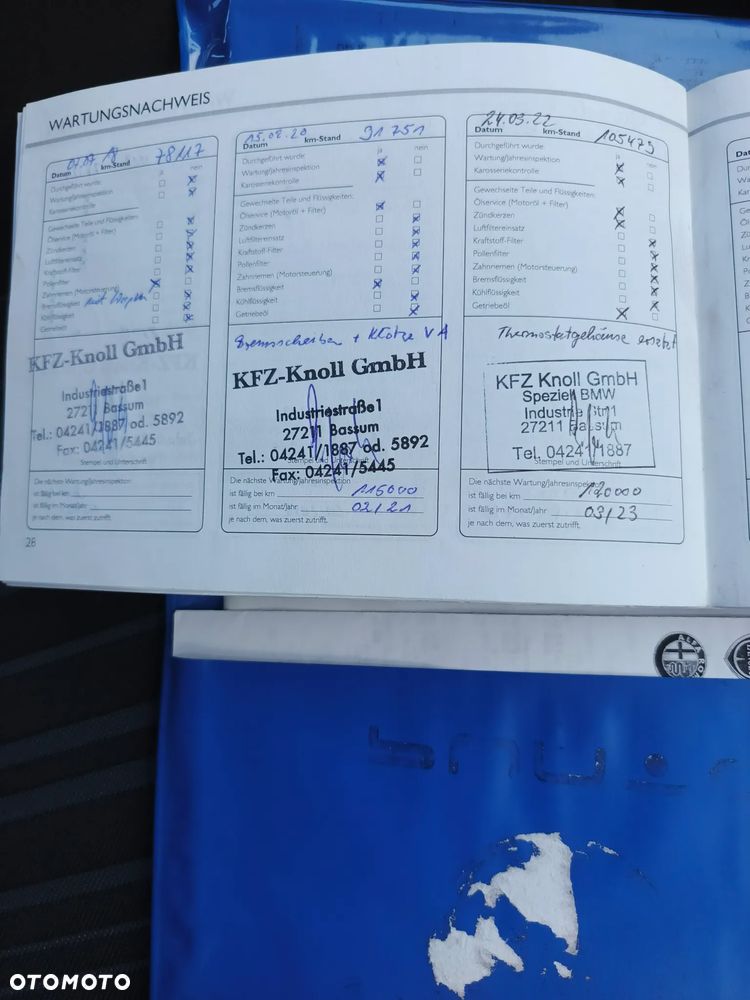 WARTUNGSNACHWEIS
78117
Datum km-Stand
ja nein
Durchgeführt wurde:
Wartung/Jahresinspektion
Karosseriekontrolle
Gewechselte Teile und Flüssigkeiten:
Ölservice (Motoröl + Filter)
Zündkerzen
Luftfiltereinsatz
Kraftstoff-Filter
Pollenfilter
Zahnriemen (Motorsteuerung)
Bremsflüssigkeit
Kühlflüssigkeit
Getriebeöl
KFZ-Knoll GmbH
Industriestraße1
27211 Bassum
Tel.: 04241/1887 od. 5892
Fax: 04241/5445
Stempel und Unterschrift
Die nächste Wartung/Jahresinspektion
ist fällig bei km
ist fällig im Monat/Jahr
je nach dem, was zuerst zutrifft.
28
15.02.20 91751
Datum km-Stand
ja nein
Durchgeführt wurde:
Wartung/Jahresinspektion
Karosseriekontrolle
Gewechselte Teile und Flüssigkeiten:
Ölservice (Motoröl + Filter)
Zündkerzen
Luftfiltereinsatz
Kraftstoff-Filter
Pollenfilter
Zahnriemen (Motorsteuerung)
Bremsflüssigkeit
Kühlflüssigkeit
Getriebeöl
Bremsscheiben + Klötze VA
KFZ-Knoll GmbH
Industriestraße1
27211 Bassum
Tel.: 04241/1887 od. 5892
Stempel und Unterschrift
Fax: 04241/5445
Die nächste Wartung/Jahresinspektion
ist fällig bei km 115000
ist fällig im Monat/Jahr 02/21
je nach dem, was zuerst zutrifft.
24.03.22 105479
Datum km-Stand
ja nein
Durchgeführt wurde:
Wartung/Jahresinspektion
Karosseriekontrolle
Gewechselte Teile und Flüssigkeiten:
Ölservice (Motoröl + Filter)
Zündkerzen
Luftfiltereinsatz
Kraftstoff-Filter
Pollenfilter
Zahnriemen (Motorsteuerung)
Bremsflüssigkeit
Kühlflüssigkeit
Getriebeöl
Thermostatgehäuse ersetzt
KFZ Knoll GmbH
Speziell BMW
Industriestr. 1
27211 Bassum
Tel. 04241/1887
Stempel und Unterschrift
Die nächste Wartung/Jahresinspektion
ist fällig bei km 120000
ist fällig im Monat/Jahr 03/23
je nach dem, was zuerst zutrifft.
ALFA RO
OTOMOTO